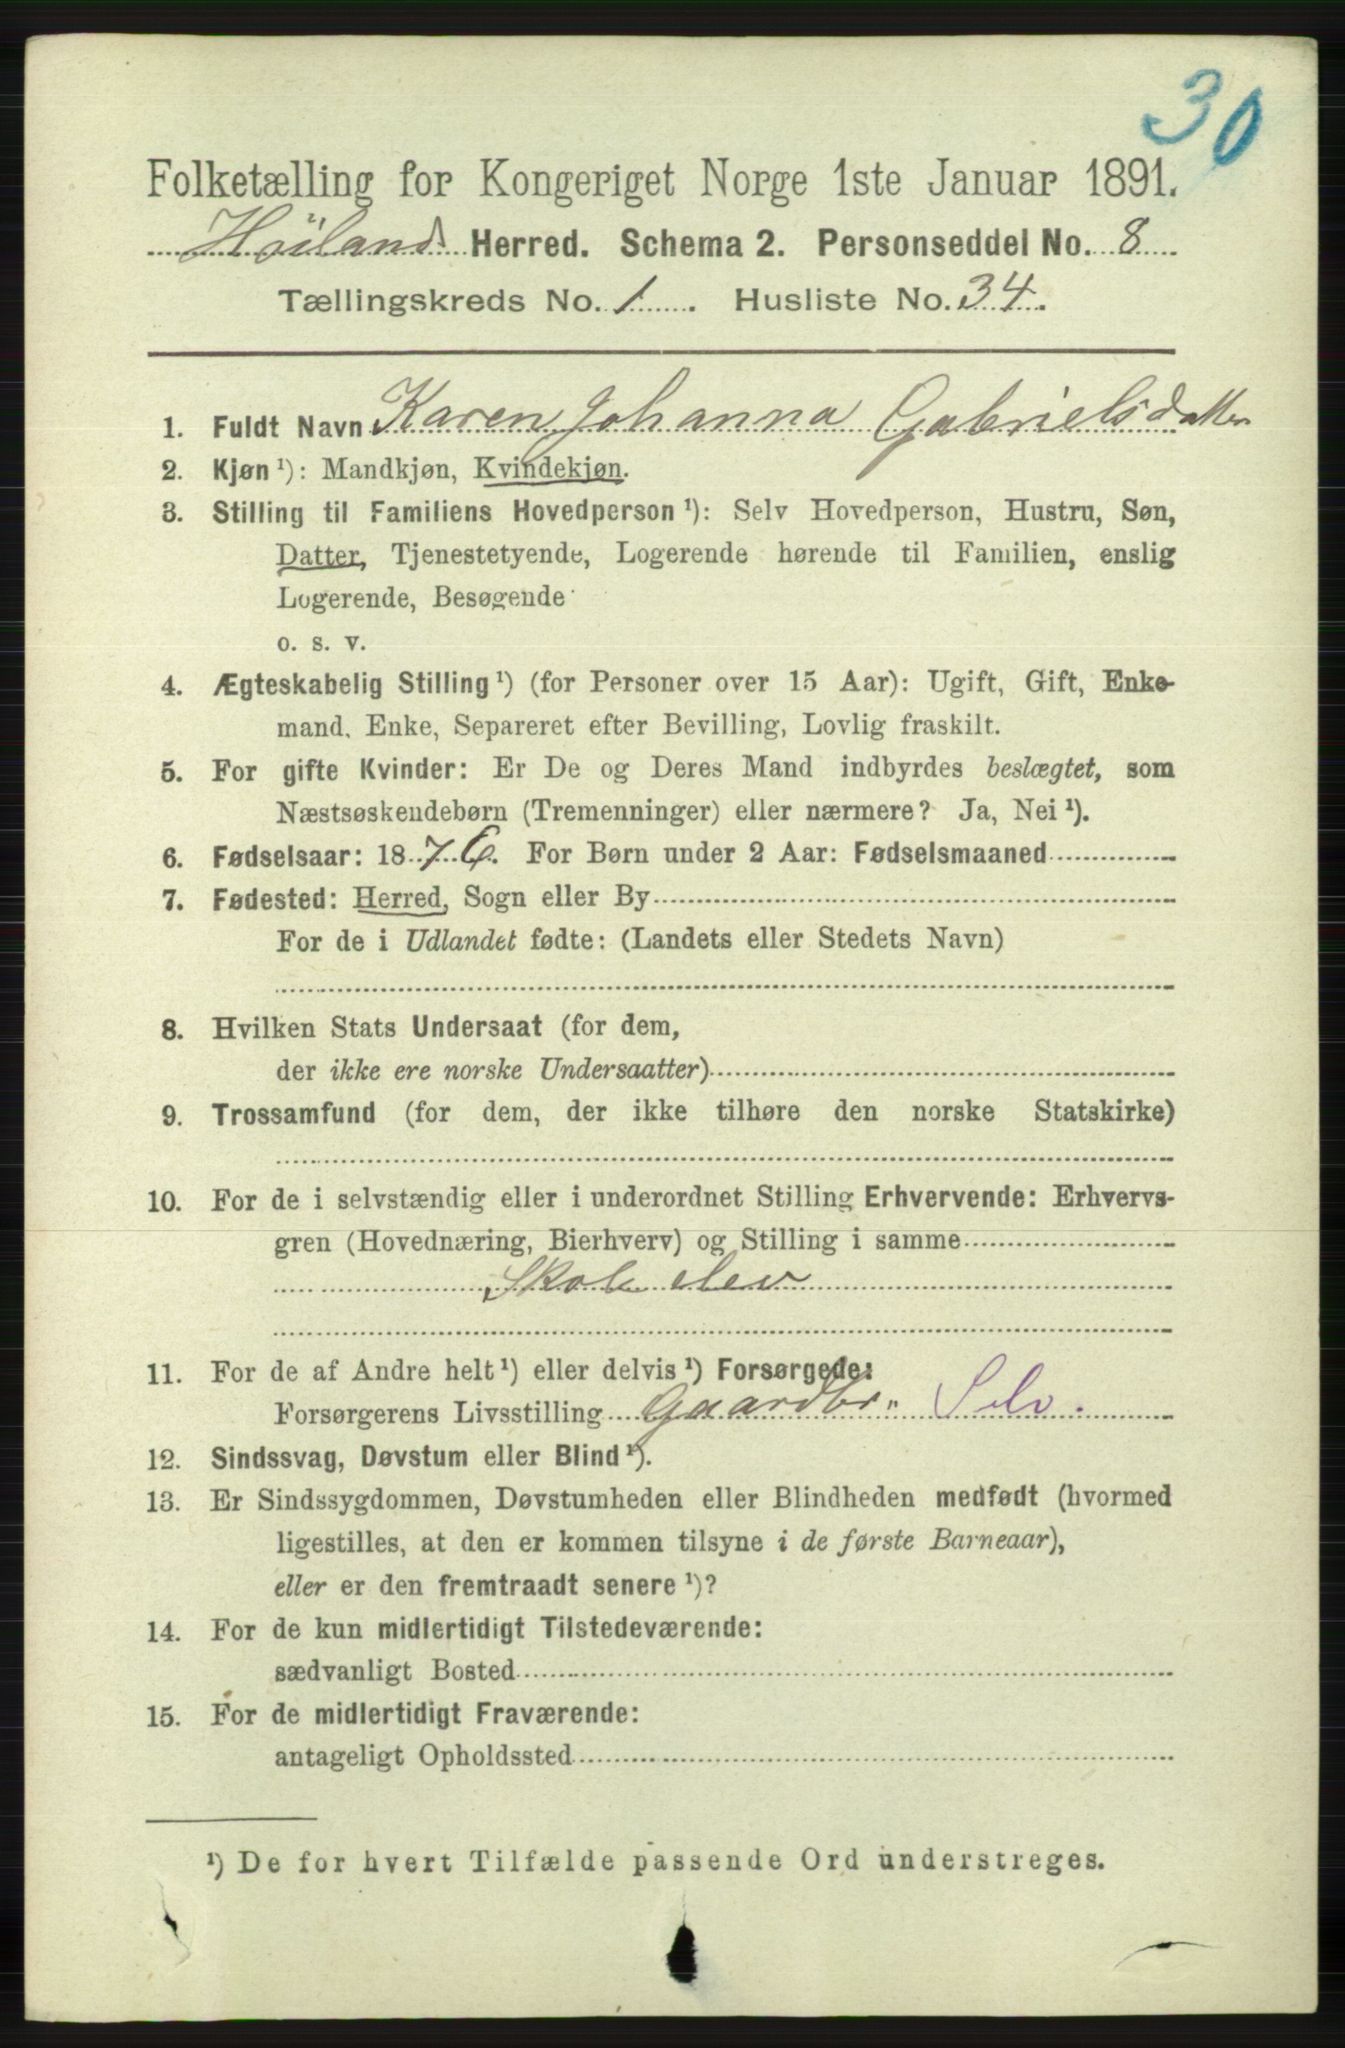 30
Folketælling for Kongeriget Norge 1ste Januar 1891.
Höiland Herred. Schema 2. Personseddel No. 8
Tællingskreds No. 1. Husliste No. 34.
1. Fuldt Navn Karen Johanna Gabrielsdatter
2. Kjøn ¹): Mandkjøn, Kvindekjøn.
3. Stilling til Familiens Hovedperson ¹): Selv Hovedperson, Hustru, Søn,
Datter, Tjenestetyende, Logerende hørende til Familien, enslig
Logerende, Besøgende
o. s. v.
4. Ægteskabelig Stilling ¹) (for Personer over 15 Aar): Ugift, Gift, Enke-
mand, Enke, Separeret efter Bevilling, Lovlig fraskilt.
5. For gifte Kvinder: Er De og Deres Mand indbyrdes beslægtet, som
Næstsøskendebørn (Tremenninger) eller nærmere? Ja, Nei ¹).
6. Fødselsaar: 1876. For Børn under 2 Aar: Fødselsmaaned
7. Fødested: Herred, Sogn eller By
For de i Udlandet fødte: (Landets eller Stedets Navn)
8. Hvilken Stats Undersaat (for dem,
der ikke ere norske Undersaatter)
9. Trossamfund (for dem, der ikke tilhøre den norske Statskirke)
10. For de i selvstændig eller i underordnet Stilling Erhvervende: Erhvervs-
gren (Hovednæring, Bierhverv) og Stilling i samme
Skole elev
11. For de af Andre helt ¹) eller delvis ¹) Forsørgede:
Forsørgerens Livsstilling Gaardbr. Selv.
12. Sindssvag, Døvstum eller Blind ¹).
13. Er Sindssygdommen, Døvstumheden eller Blindheden medfødt (hvormed
ligestilles, at den er kommen tilsyne i de første Barneaar),
eller er den fremtraadt senere ¹)?
14. For de kun midlertidigt Tilstedeværende:
sædvanligt Bosted
15. For de midlertidigt Fraværende:
antageligt Opholdssted
¹) De for hvert Tilfælde passende Ord understreges.